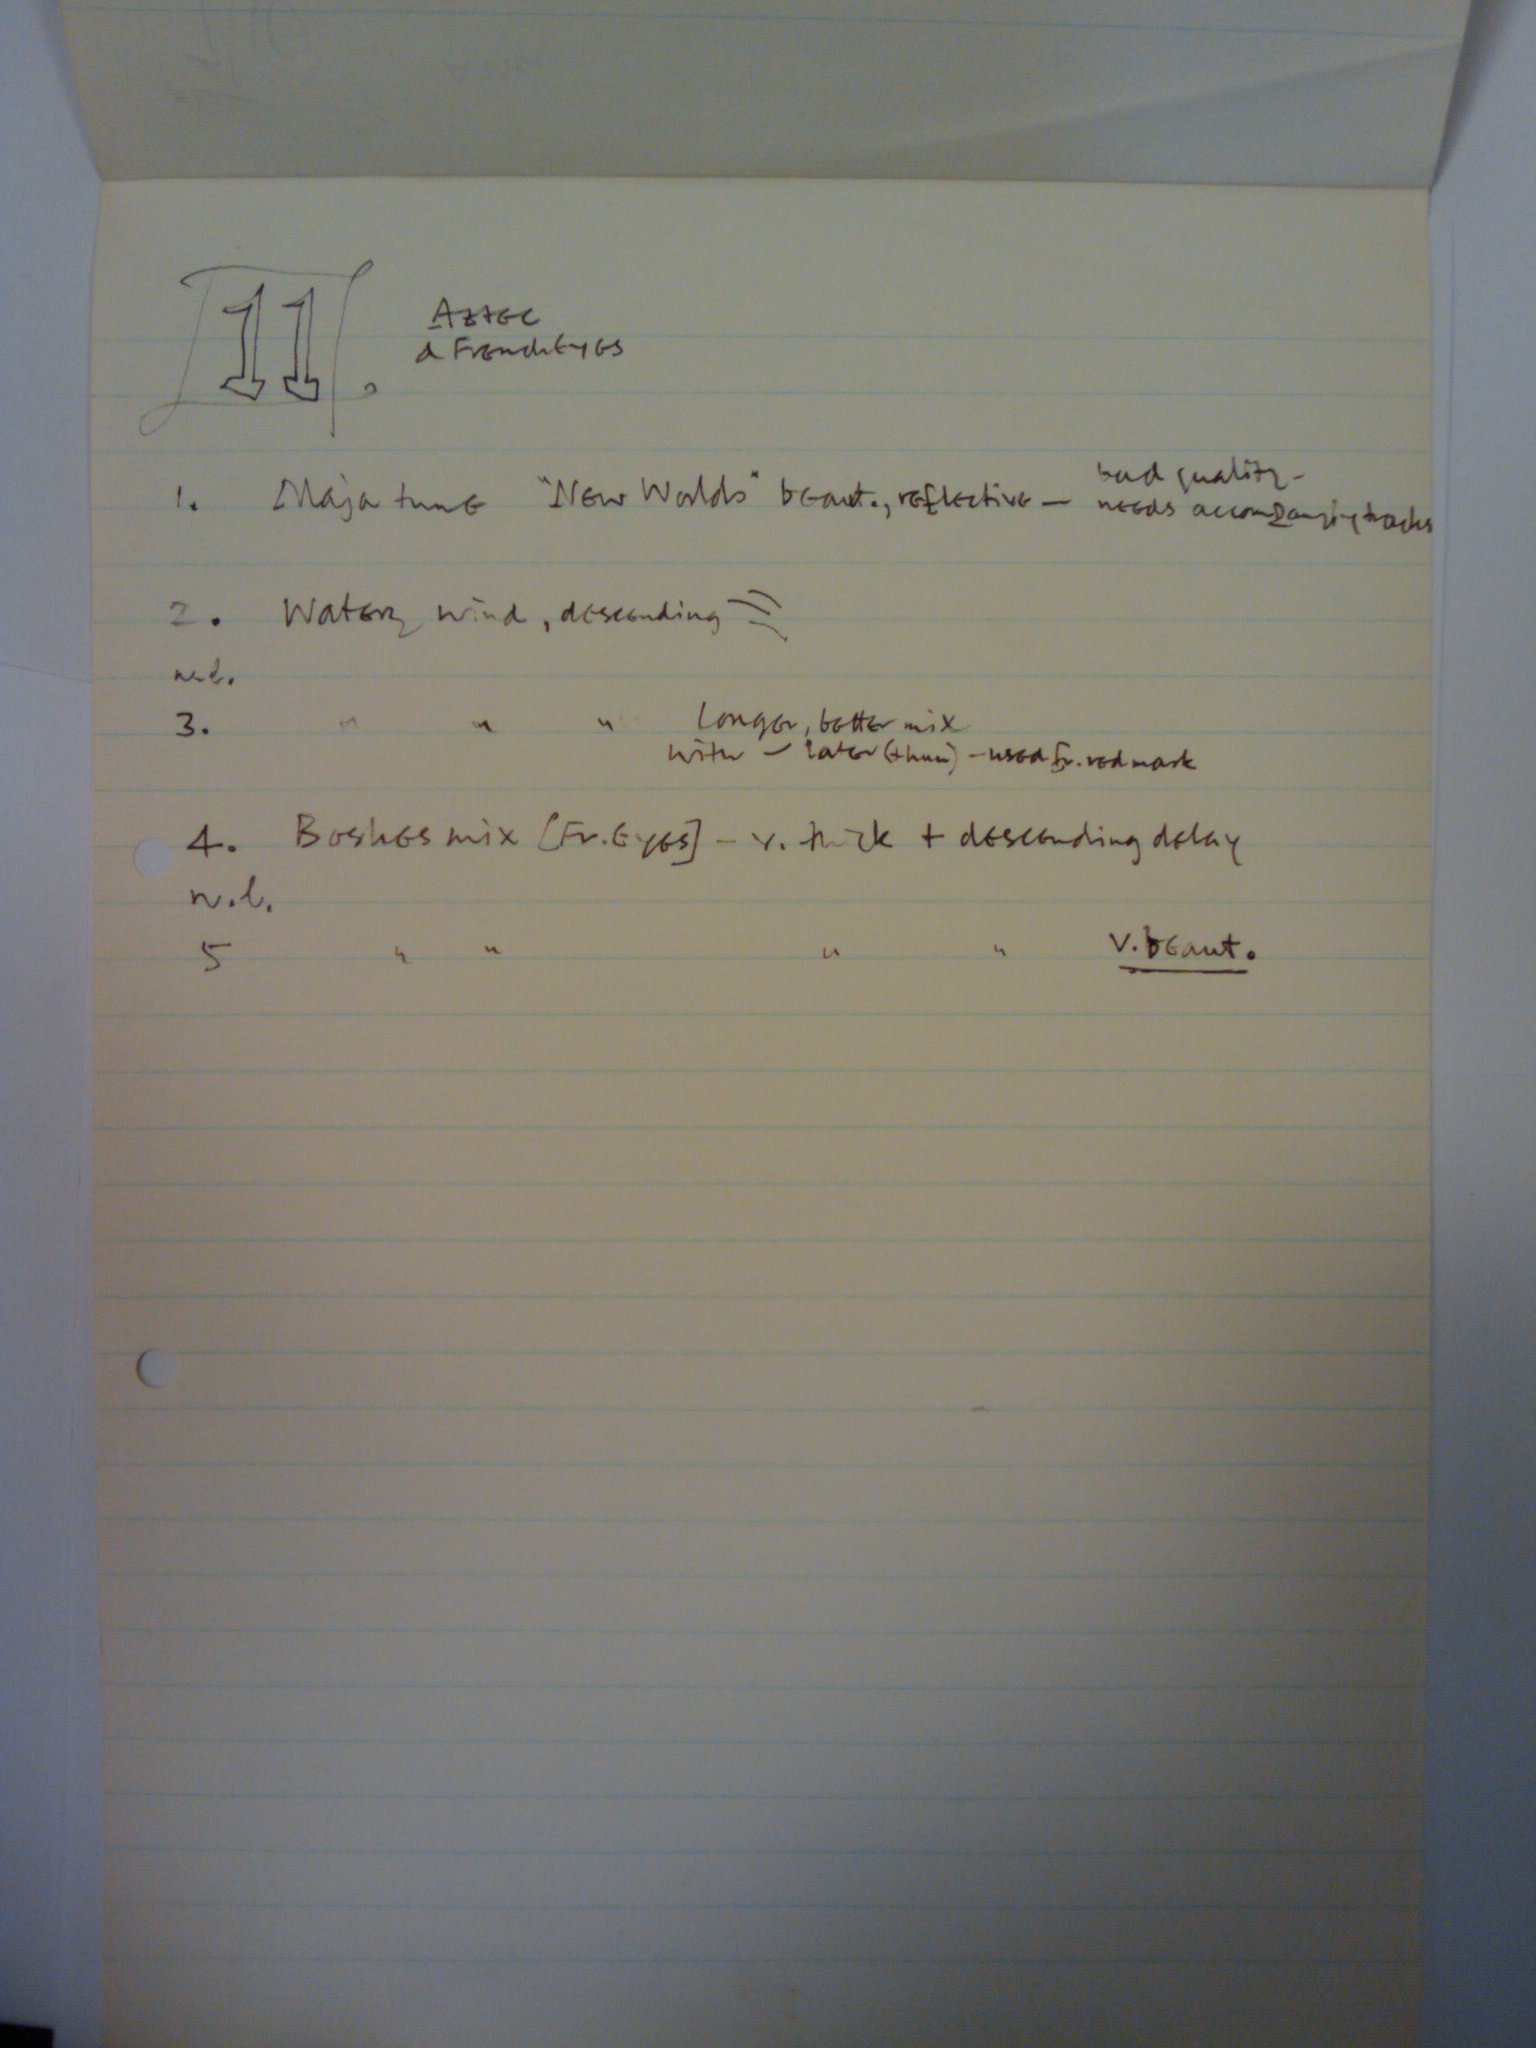 11.
Aztec
& French Eyes
1. Maja tune "New Worlds" beaut., reflective — bad quality -
needs accompanying tracks
2. Water, wind, descending
n.l.
3. " " " longer, better mix
with — later (thun) - used fr. red mark
4. Boshes mix [Fr. Eyes] - v. thick + descending delay
n.l.
5 " " " " v. beaut.